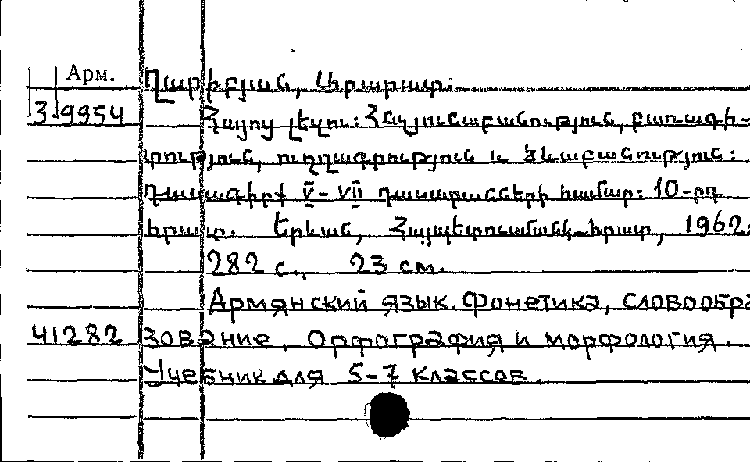 Арм. Ղարիբյան, Արարատ.
3-9954 Հայոց լեզու: Հնչյունաբանություն, բառագի-
տություն, ուղղագրություն և ձևաբանություն:
Դասագիրք V-VII դասարանների համար: 10-րդ
հրատ. Երևան, Հայպետուսմանկհրատ, 1962.
282 с., 23 см.
Армянский язык. Фонетика, словообра
41282 зование, орфография и морфология.
Учебник для 5-7 классов.